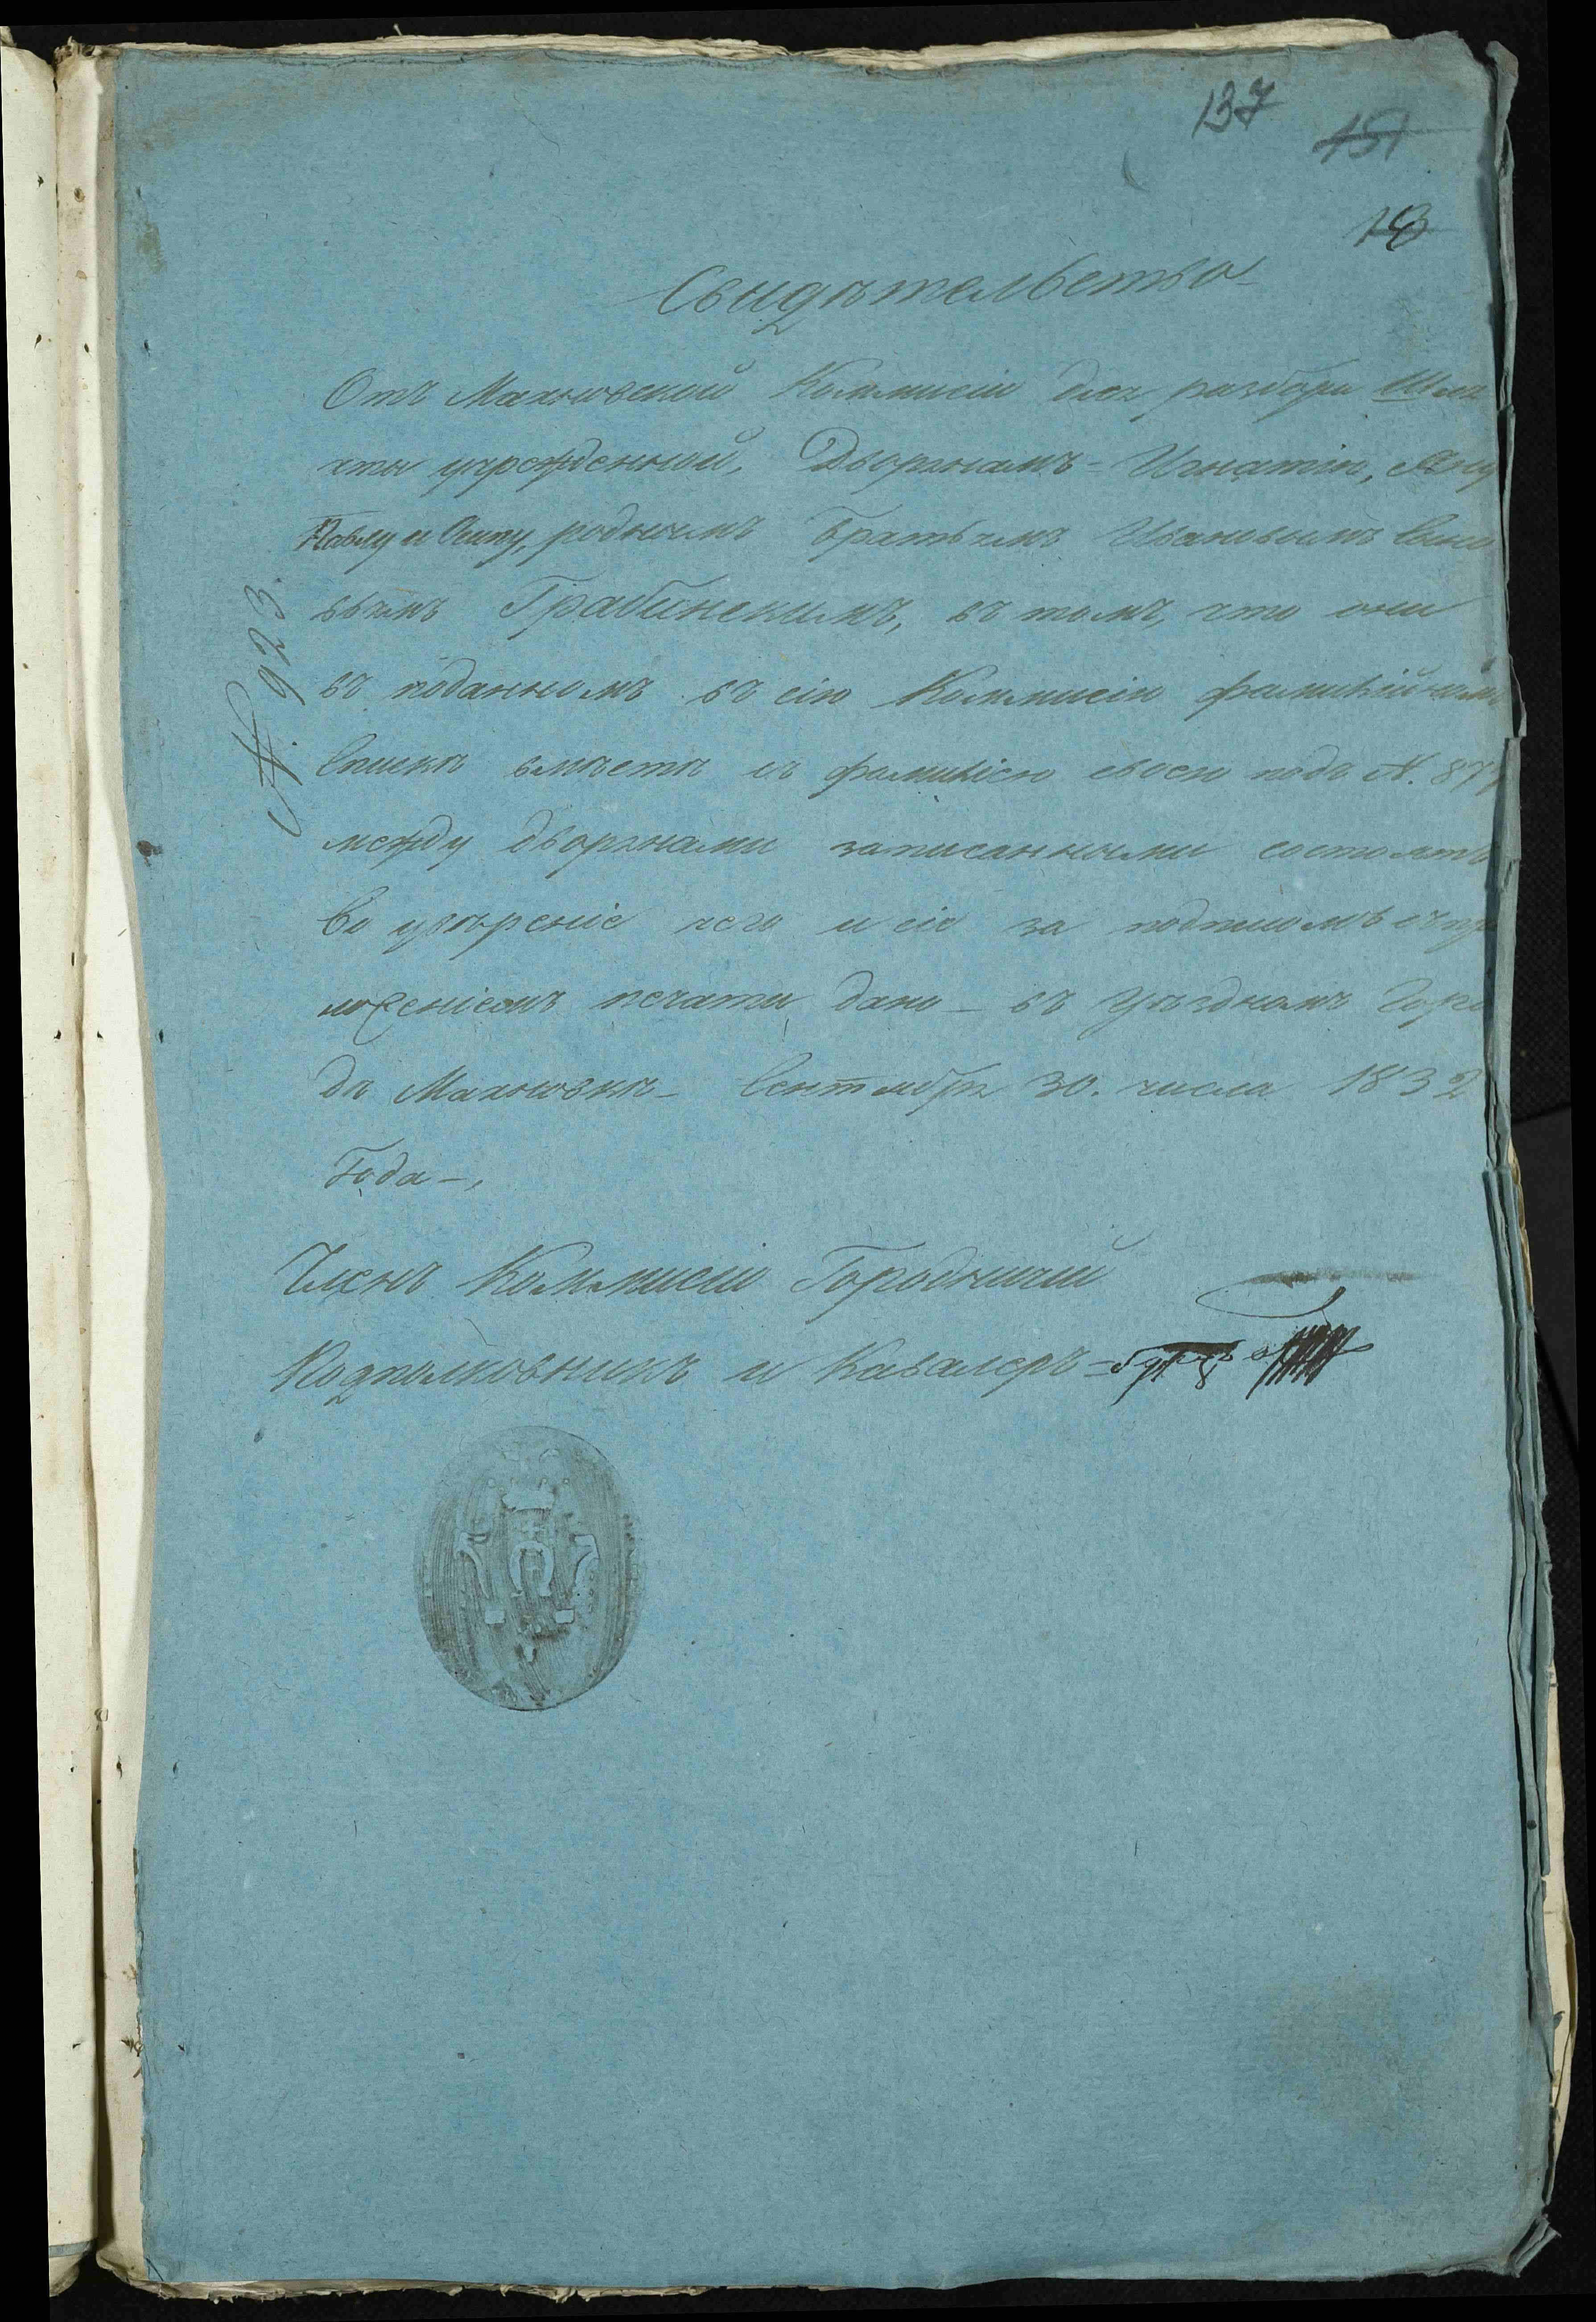 137
151
13
Свидѣтельство
Отъ Махновской Коммисіи для разбора Шлях
ты учрежденной, Дворянамъ - Игнатію, Яну
Павлу и Осипу, роднымъ Братьямъ Ивановымъ Сыно
вьямъ Грабинскимъ, въ томъ, что они
въ поданномъ въ сію Коммисію фамилійномъ
Спискѣ вмѣстѣ съ фамиліею своею подъ N. 877
между дворянами записанными состоятъ
Во увѣреніе чего и сіе за подписомъ и съ при
ложеніемъ печати дано - въ Уѣздномъ Горо
дѣ Махновкѣ - Сентября 30. числа 1832
Года -,
N. 923.
Членъ Коммисіи Городничій
Подполковникъ и Кавалеръ -